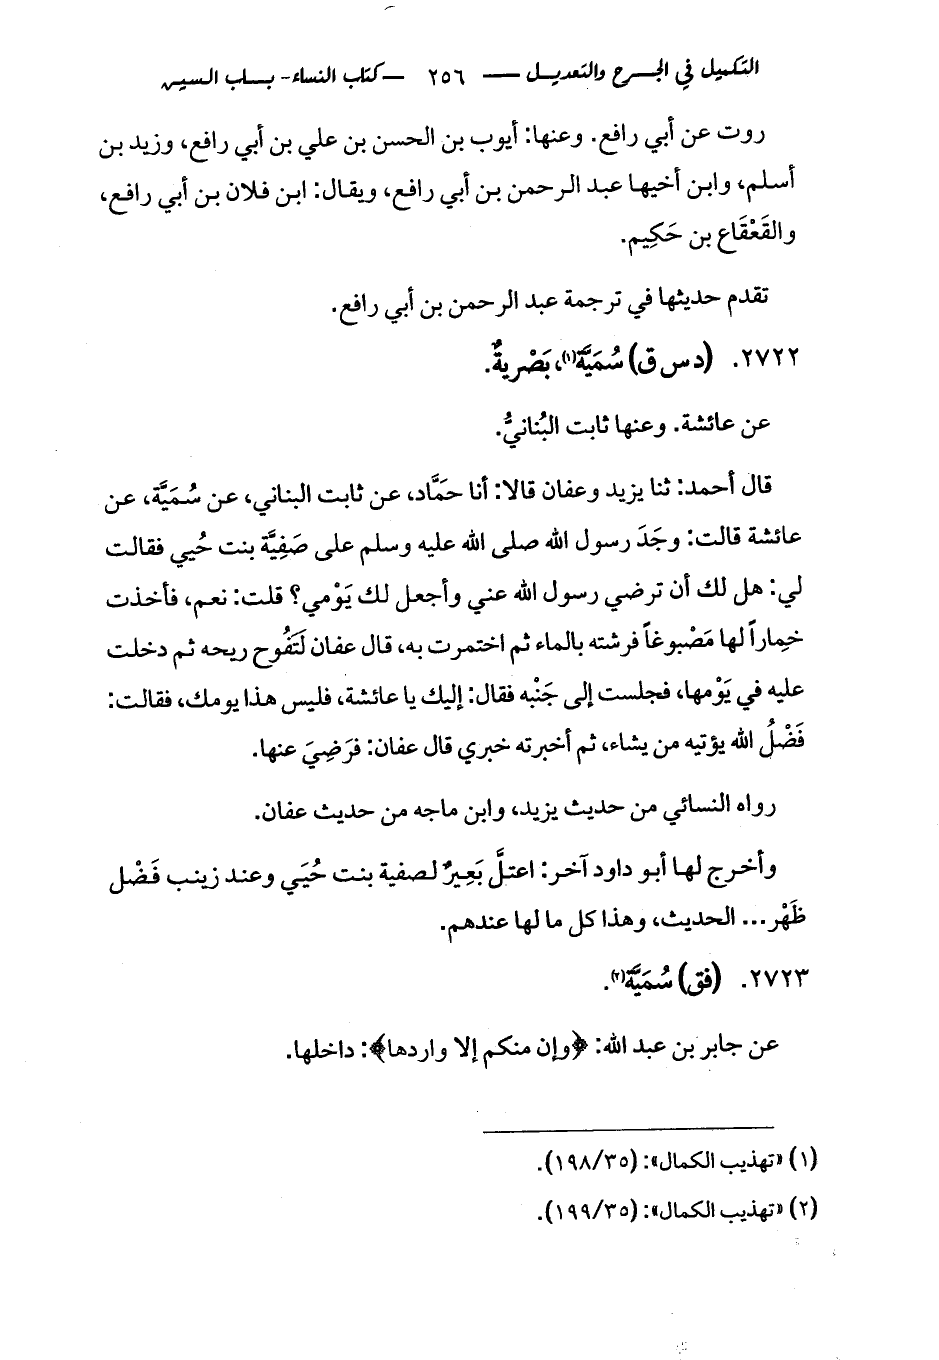 التكميل في الجرح والتعديل — ٢٥٦ — كتاب النساء - باب السين
روت عن أبي رافع. وعنها: أيوب بن الحسن بن علي بن أبي رافع، وزيد بن
أسلم، وابن أخيها عبد الرحمن بن أبي رافع، ويقال: ابن فلان بن أبي رافع،
والقَعْقَاع بن حَكِيم.
تقدم حديثها في ترجمة عبد الرحمن بن أبي رافع.
٢٧٢٢. (د س ق) سُمَيَّة(١)، بَصْريةٌ.
عن عائشة. وعنها ثابت البُنانيُّ.
قال أحمد: ثنا يزيد وعفان قالا: أنا حَمَّاد، عن ثابت البناني، عن سُمَيَّة، عن
عائشة قالت: وجَدَ رسول الله صلى الله عليه وسلم على صَفِيَّة بنت حُيي فقالت
لي: هل لك أن ترضي رسول الله عني وأجعل لك يَوْمي؟ قلت: نعم، فأخذت
خِماراً لها مَصْبوغاً فرشته بالماء ثم اختمرت به، قال عفان لَتَفُوح ريحه ثم دخلت
عليه في يَوْمها، فجلست إلى جَنْبه فقال: إليك يا عائشة، فليس هذا يومك، فقالت:
فَضْلُ الله يؤتيه من يشاء، ثم أخبرته خبري قال عفان: فرَضِيَ عنها.
رواه النسائي من حديث يزيد، وابن ماجه من حديث عفان.
وأخرج لها أبو داود آخر: اعتلَّ بَعِيرٌ لصفية بنت حُيَي وعند زينب فَضْل
ظَهْر... الحديث، وهذا كل ما لها عندهم.
٢٧٢٣. (فق) سُمَيَّة(٢).
عن جابر بن عبد الله: ﴿وإن منكم إلا واردها﴾: داخلها.
(١) «تهذيب الكمال»: (١٩٨/٣٥).
(٢) «تهذيب الكمال»: (١٩٩/٣٥).